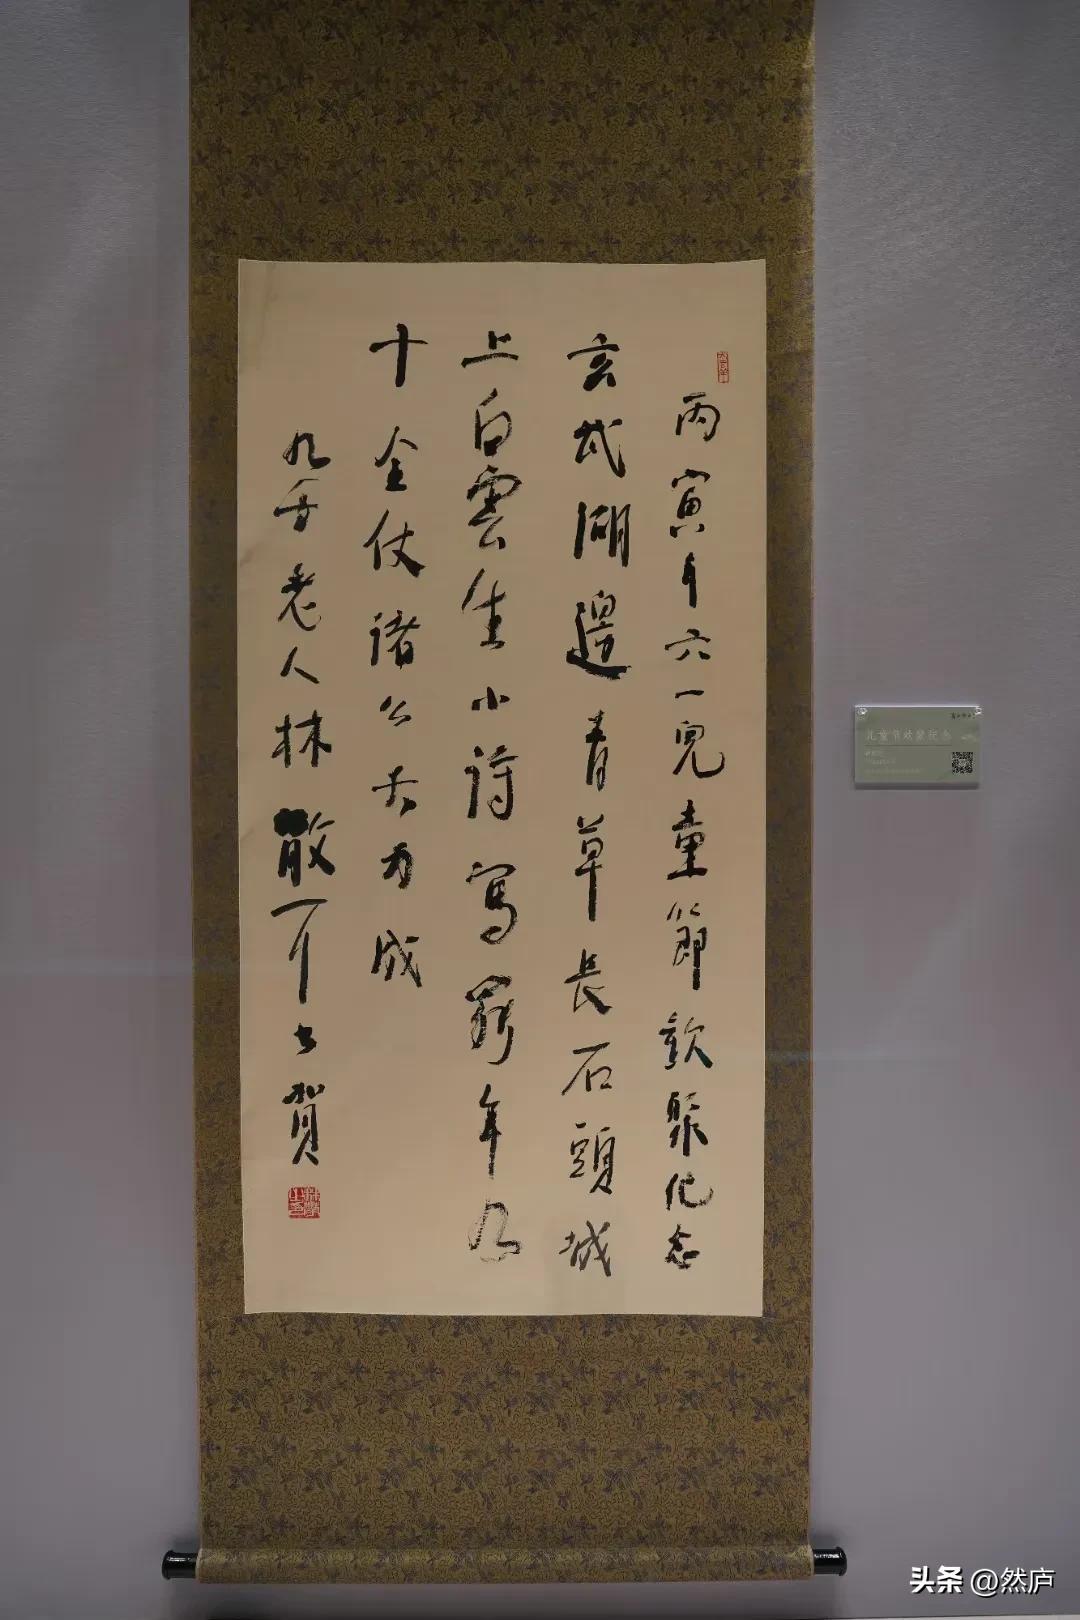 丙寅年六一兒童節歡聚纪念
玄武湖邊青草長石頭城
上白雲生小詩寫罷年九
十全仗諸公大力成
九十老人林散耳书賀
儿童节欢聚纪念
头条 @然庐